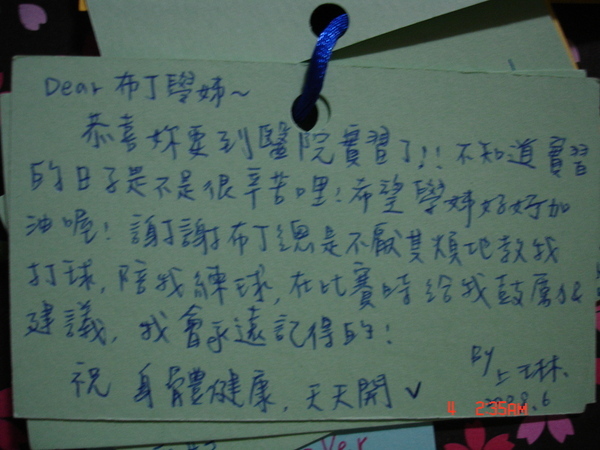 Dear 布丁學姊~
恭喜妳要到醫院實習了!! 不知道實習
的日子是不是很辛苦哩! 希望學姊好好加
油喔! 謝謝布丁總是不厭其煩地教我
打球, 陪我練球, 在比賽時給我鼓勵&
建議, 我會永遠記得的!
祝 身體健康, 天天開
By
2008.6
4 2:35AM
ver